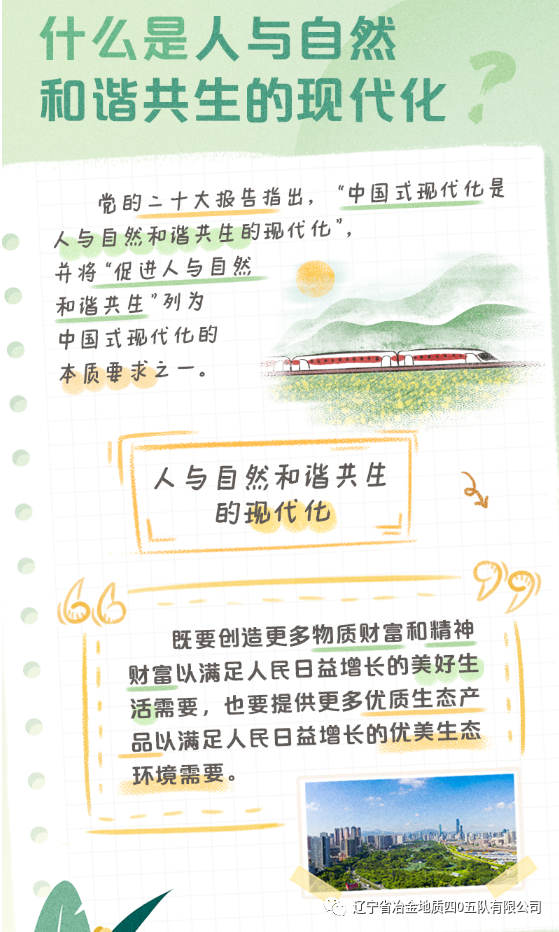 什么是人与自然
和谐共生的现代化?
党的二十大报告指出，“中国式现代化是
人与自然和谐共生的现代化”，
并将“促进人与自然
和谐共生”列为
中国式现代化的
本质要求之一。
人与自然和谐共生
的现代化
既要创造更多物质财富和精神
财富以满足人民日益增长的美好生
活需要，也要提供更多优质生态产
品以满足人民日益增长的优美生态
环境需要。
辽宁省冶金地质四0五队有限公司